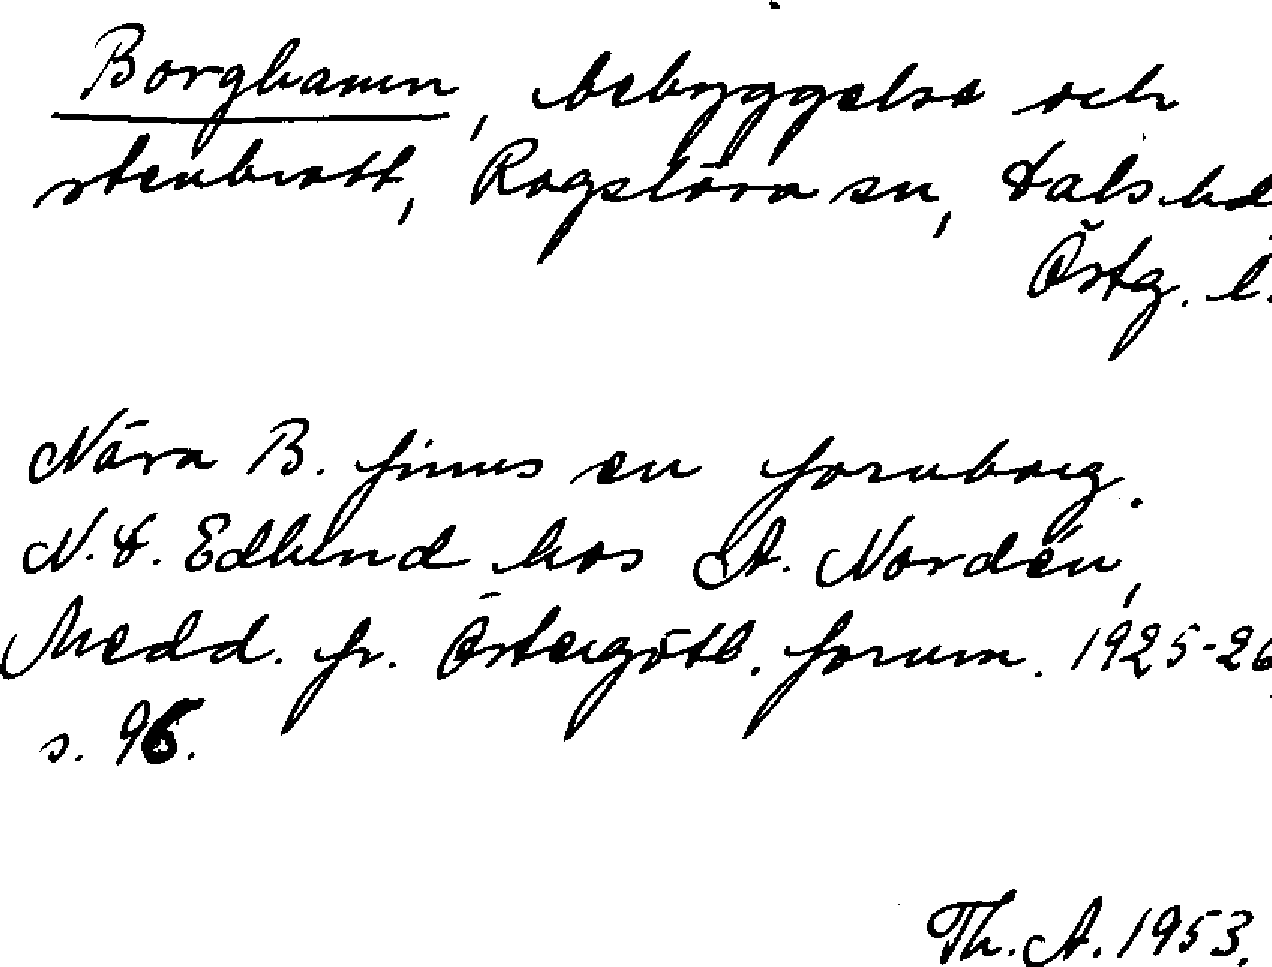 Borghamn, bebyggelse och
stenbrott, Rogslösa sn, Dals hd
Östg. l.
Nära B. finns en fornborg.
N. D. Edlund hos A. Nordén,
Medd. fr. Östergötl. fornm. 1925-26
s. 96.
Th. A. 1953.